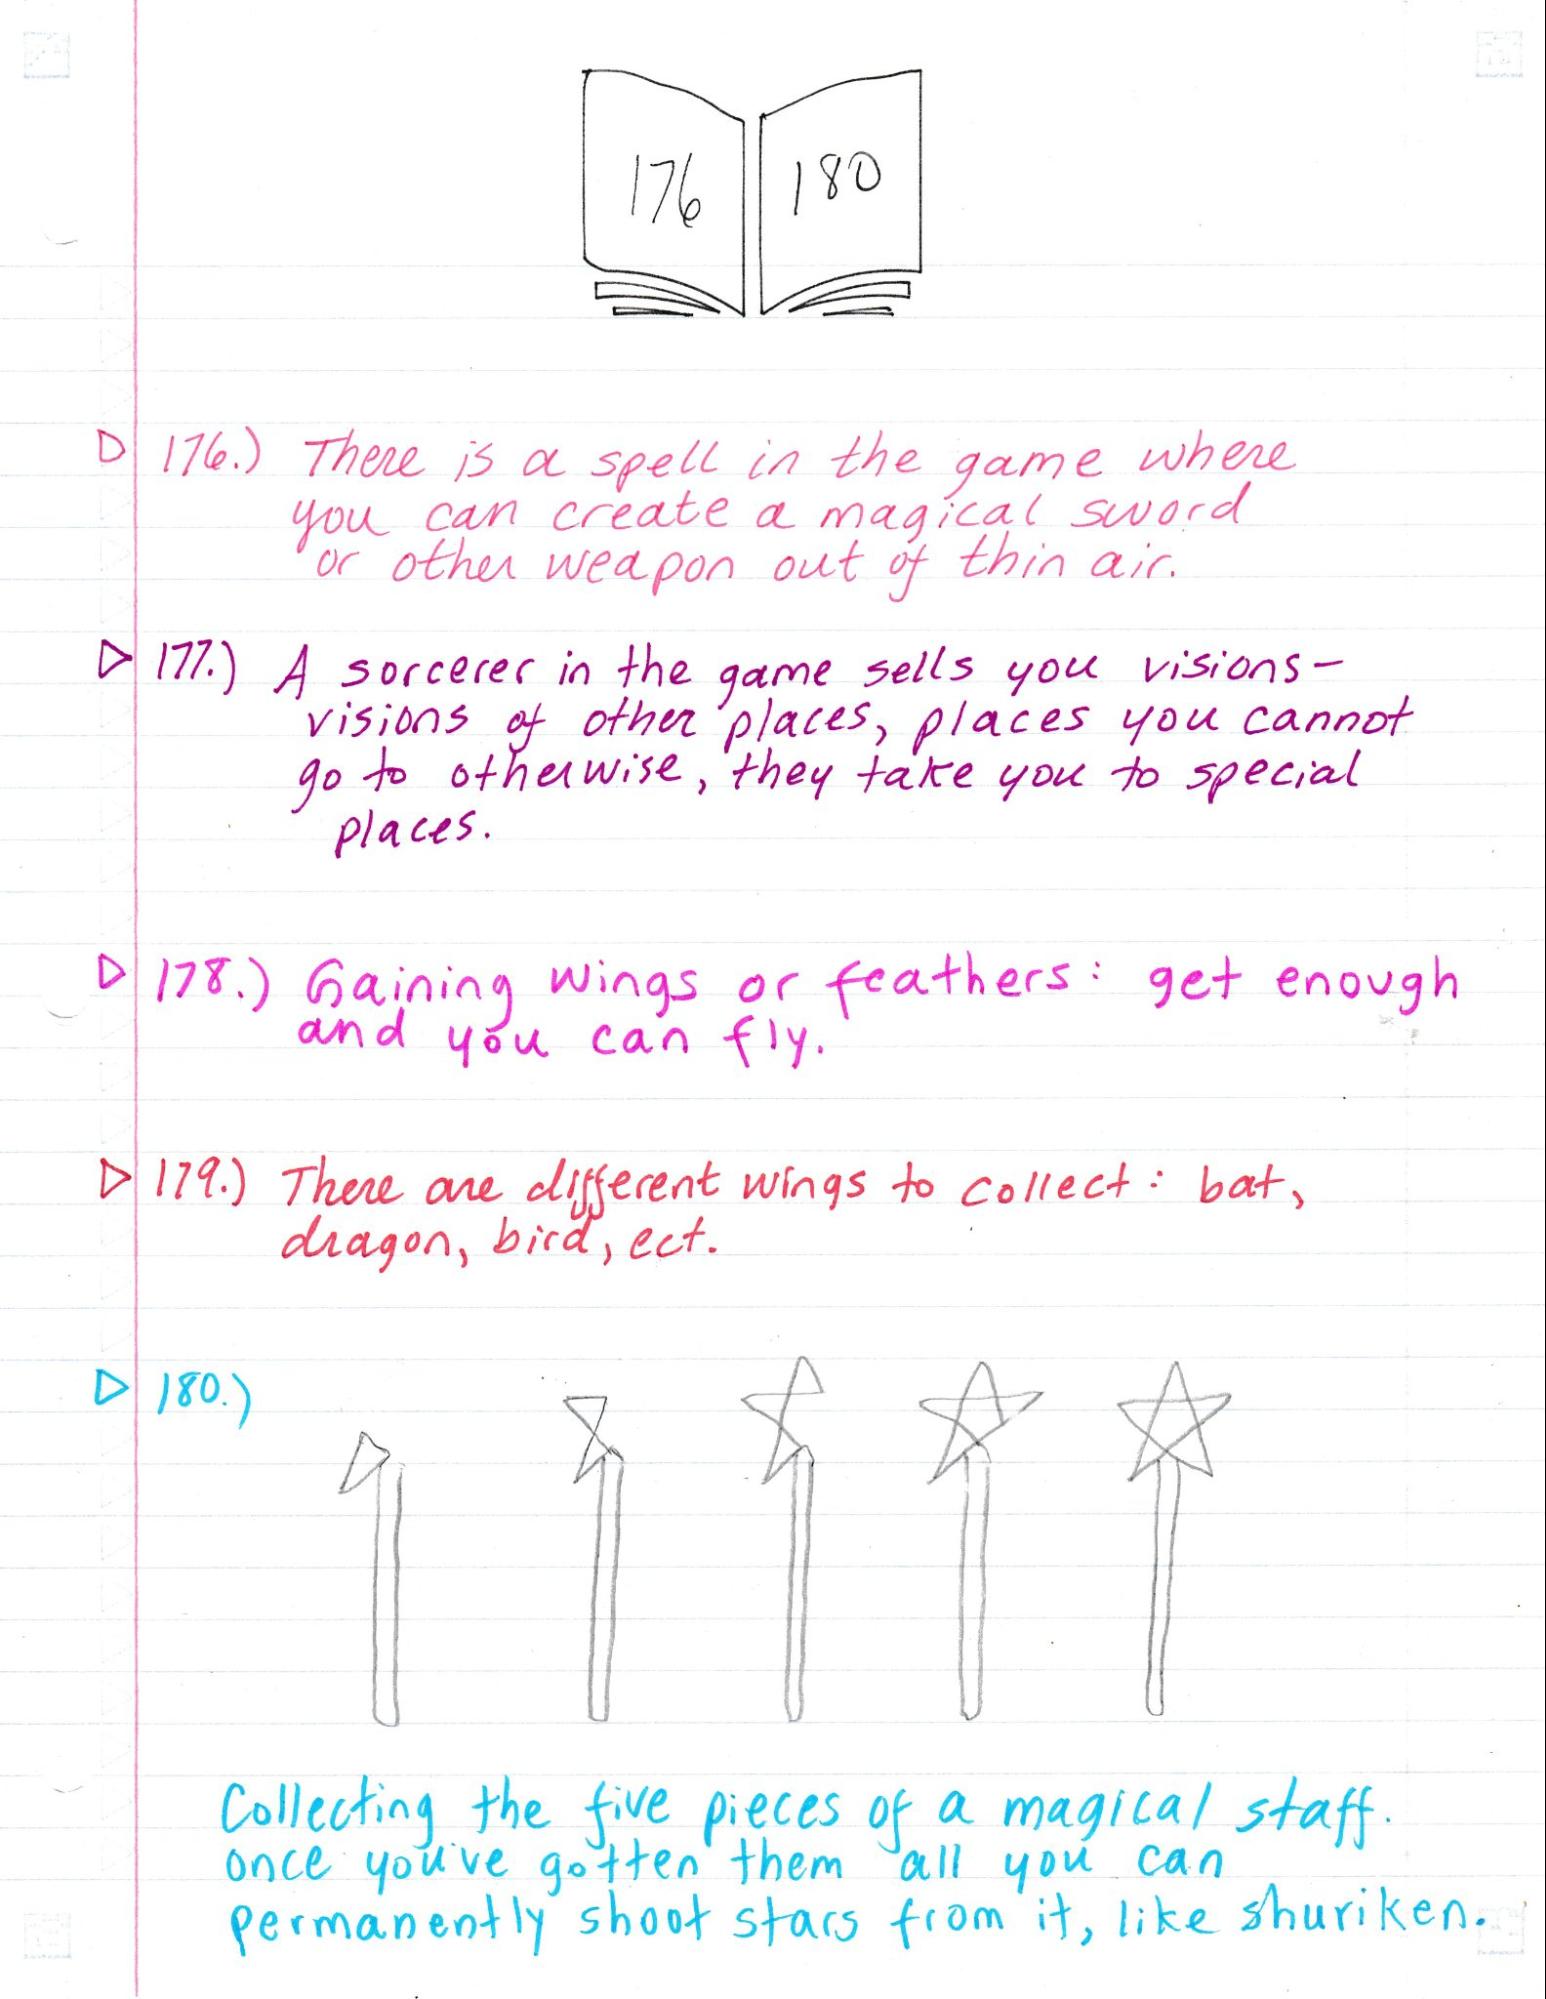 176 180
176.) There is a spell in the game where
you can create a magical sword
or other weapon out of thin air.
177.) A sorcerer in the game sells you visions-
visions of other places, places you cannot
go to otherwise, they take you to special
places.
178.) Gaining wings or feathers: get enough
and you can fly.
179.) There are different wings to collect: bat,
dragon, bird, ect.
180.)
Collecting the five pieces of a magical staff.
once you've gotten them all you can
permanently shoot stars from it, like shuriken.